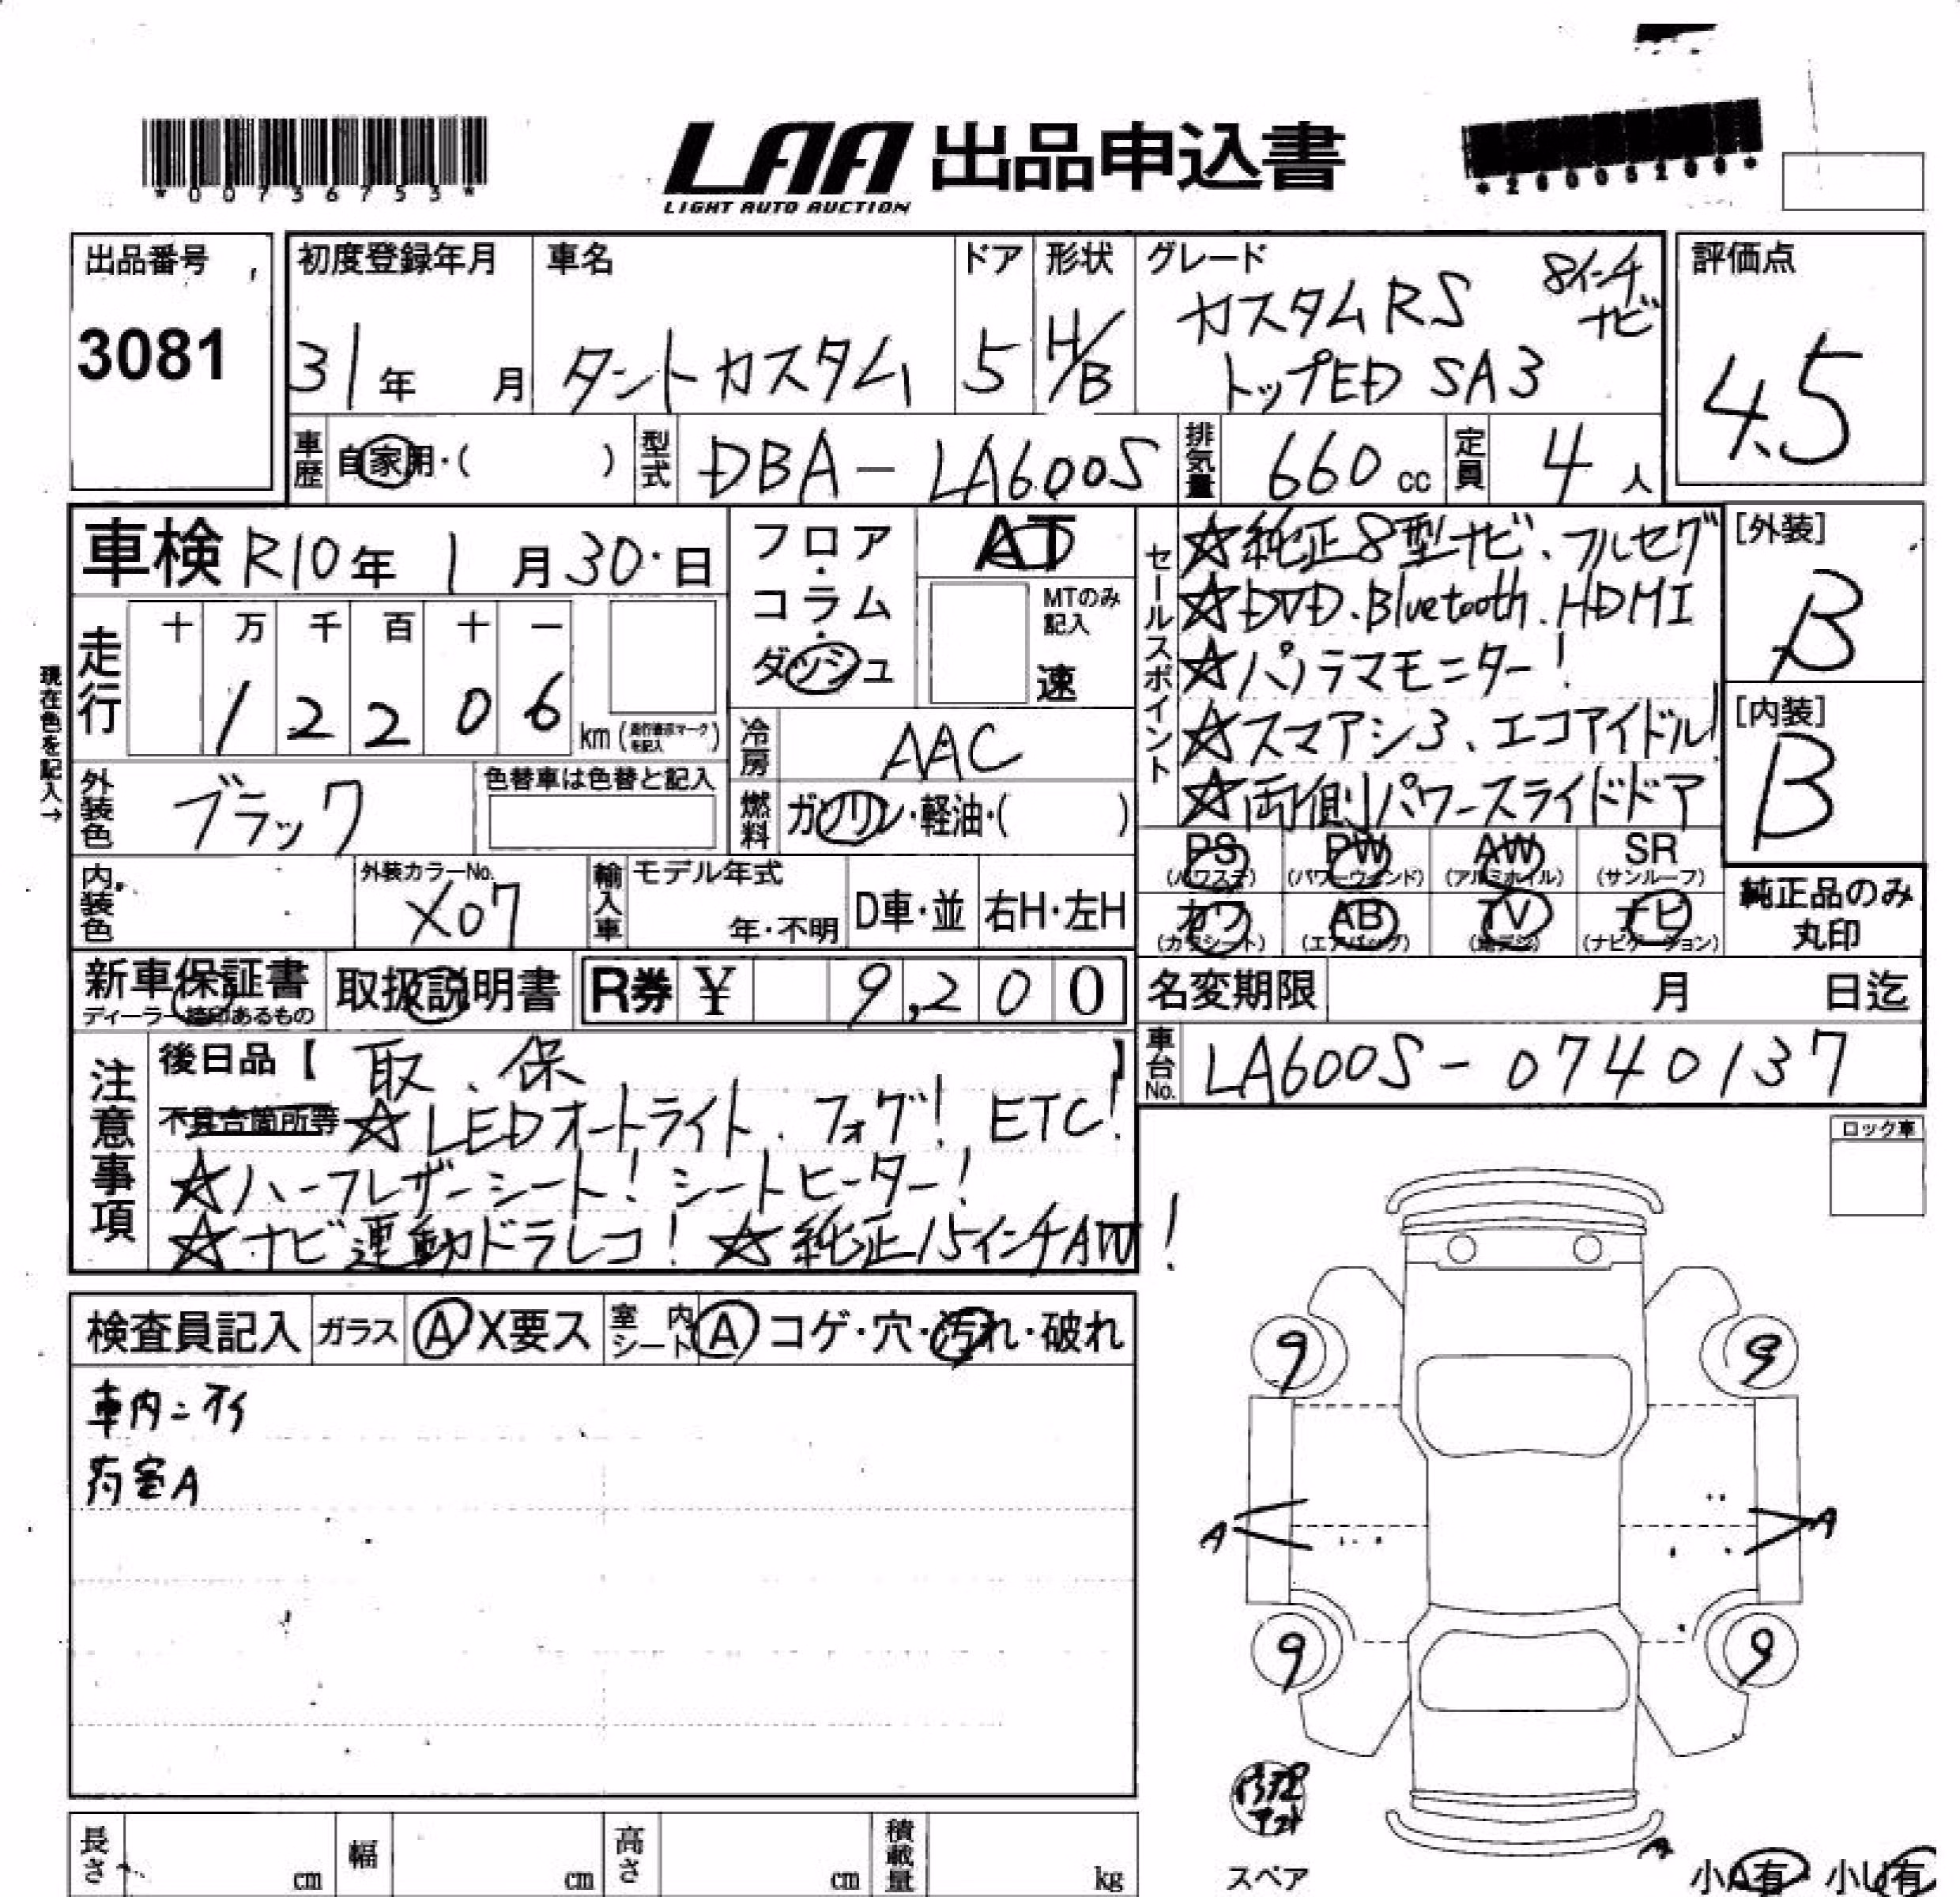 *00736753*
LAA 出品申込書
LIGHT AUTO AUCTION
出品番号
3081
初度登録年月
31年 月
車名
タントカスタム
ドア
5
形状
H/B
グレード
カスタムRS 8インチナビ
トップED SA3
評価点
4.5
車歴 自家用・( )
型式 DBA-LA600S
排気量 660 cc
定員 4 人
車検 R10年 1月30日
フロア・コラム・ダッシュ
AT
MTのみ記入
速
セールスポイント
☆純正8型ナビ、フルセグ
☆DVD、Bluetooth、HDMI
☆パノラマモニター!
☆スマアシ3、エコアイドル!
☆両側パワースライドドア
[外装]
B
[内装]
B
現在色を記入→
走行
十 万 千 百 十 一
1 2 2 0 6 km
冷房 AAC
外装色 ブラック
色替車は色替と記入
燃料 ガソリン・軽油・( )
PS (パワステ) PW (パワーウインド) AW (アルミホイル) SR (サンルーフ)
カワ (カワシート) AB (エアバッグ) TV (地デジ) ナビ (ナビゲーション)
純正品のみ丸印
内装色
外装カラーNo.
X07
輸入車
モデル年式
年・不明
D車・並
右H・左H
新車保証書
ディーラー捺印あるもの
取扱説明書
R券 ¥ 9,200
名変期限 月 日迄
車台No. LA600S-0740137
注意事項
後日品【 取、保 】
不具合箇所等 ☆LEDオートライト、フォグ! ETC!
☆ハーフレザーシート! シートヒーター!
☆ナビ連動ドラレコ! ☆純正15インチAW!
ロック車
検査員記入 ガラス A X要ス 室内シート A コゲ・穴・汚れ・破れ
荷室A
9 9
A A
9 9
スペア
A
小A有・小U有
長さ cm 幅 cm 高さ cm 積載量 kg